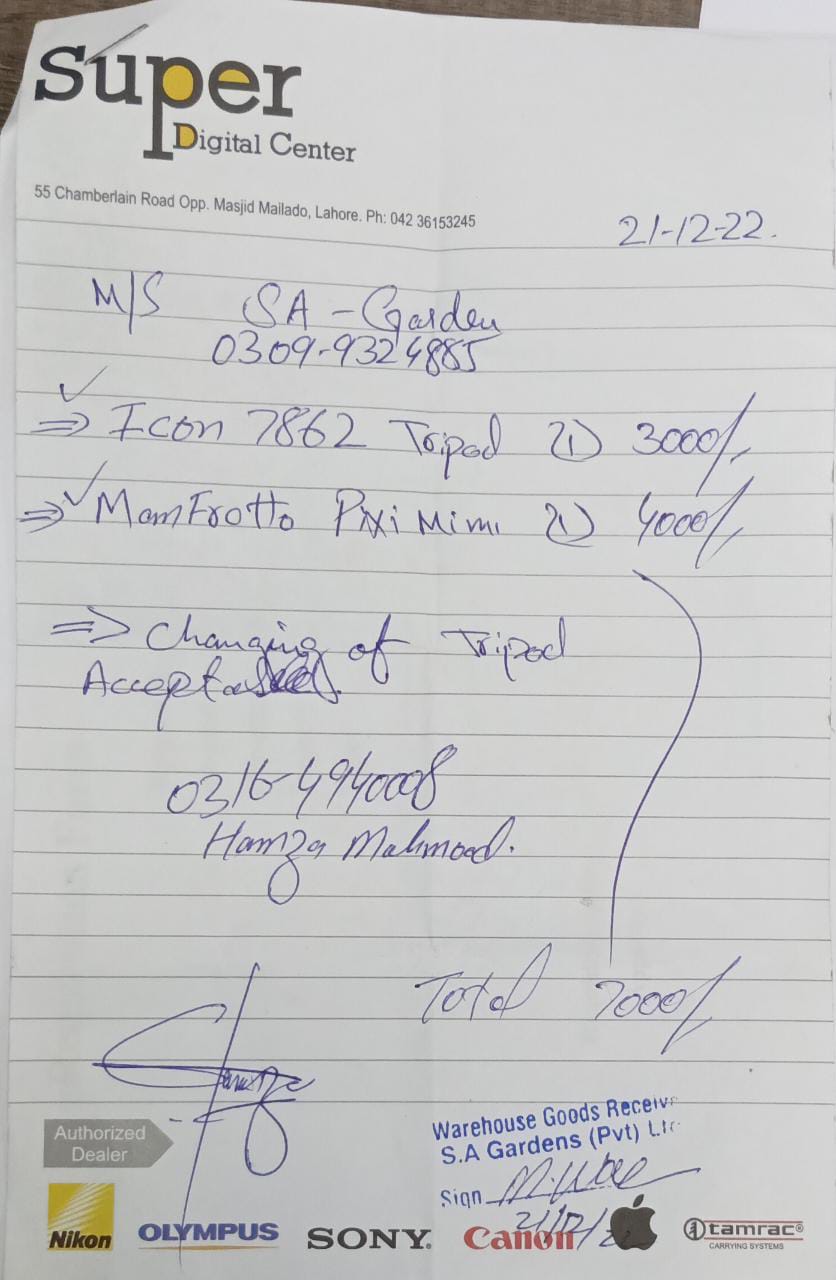 Super
Digital Center
55 Chamberlain Road Opp. Masjid Mailado, Lahore. Ph: 042 36153245
21-12-22.
M/S SA-Garden
0309-9324885
⇒ Icon 7862 Tripod (1) 3000/-
⇒ ManFrotto Pixi Mimi (1) 4000/-
⇒ Changing of Tripod
0316-4940008
Hamza Mahmood.
Total 7000/-
Hamza
Authorized
Dealer
Warehouse Goods Receiv
S.A Gardens (Pvt) Lt
Sign
21/12/2
Nikon
OLYMPUS
SONY.
Canon
tamrac®
CARRYING SYSTEMS